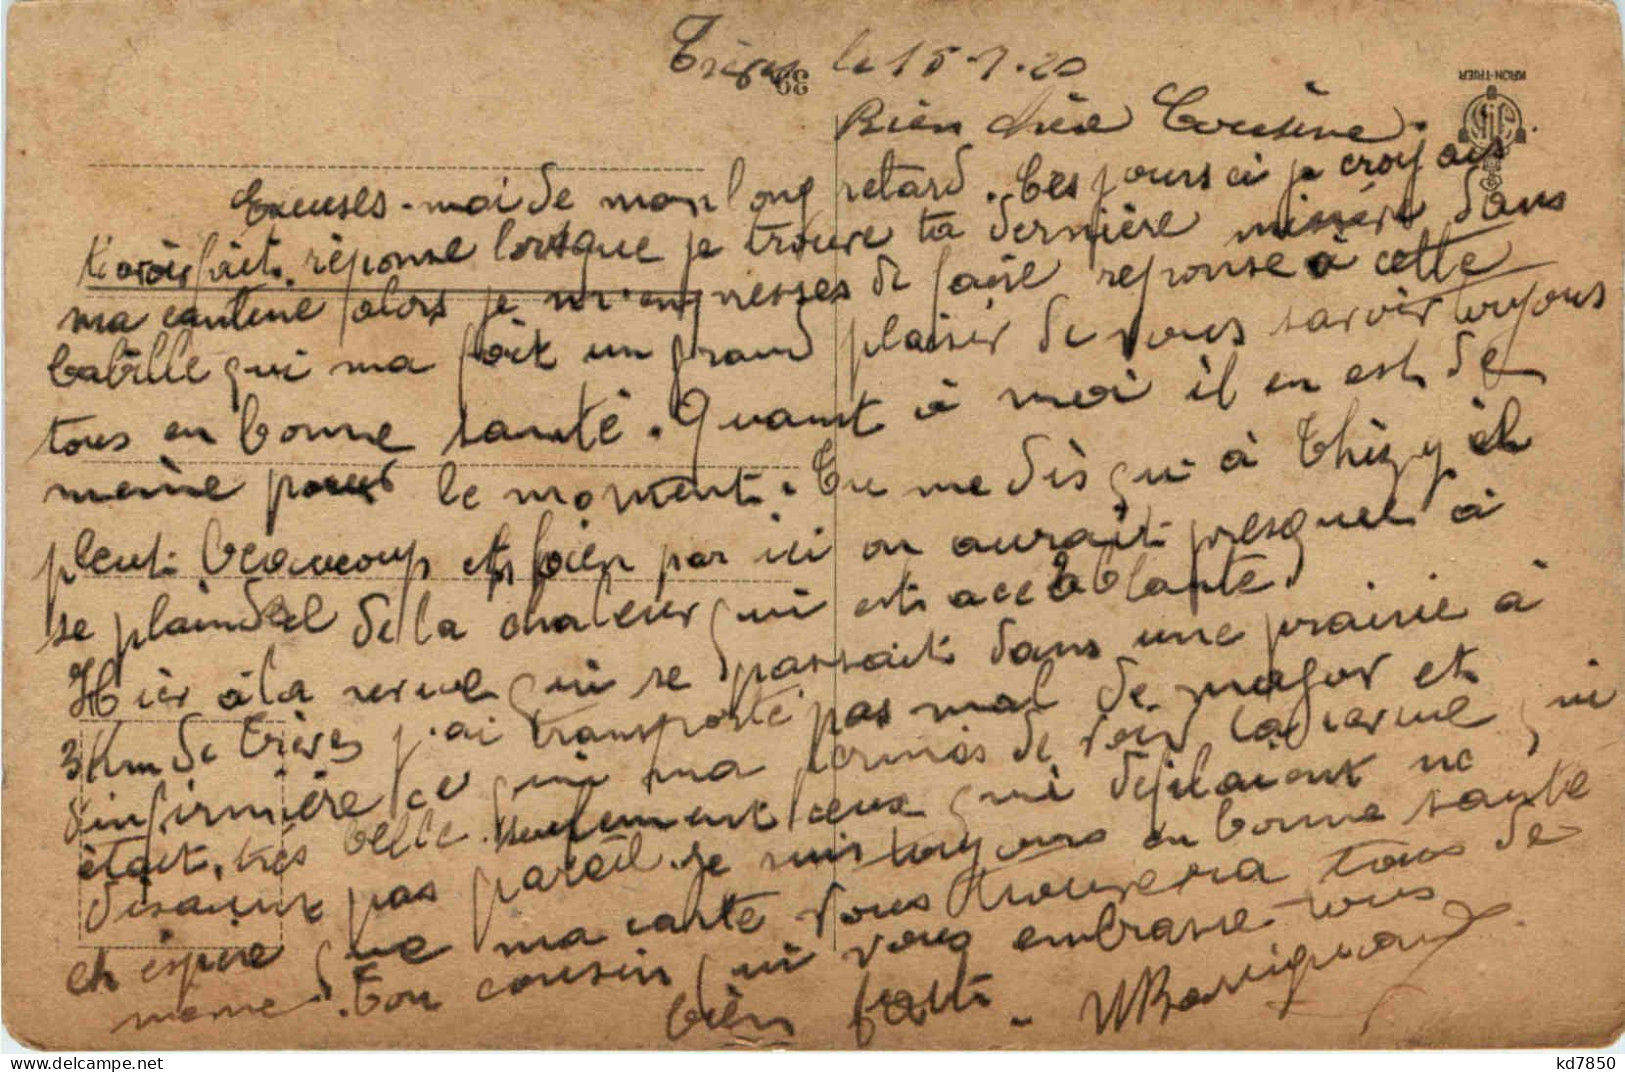 Trèves le 15-7-20
Bien chère Cousine.
Excuses-moi de mon long retard. Ces jours ci je croyais
t'avoir fait réponse lorsque je trouve ta dernière missive dans
ma cantine alors je m'empresses de faire reponse à cette
babille qui ma fait un grand plaisir de vous savoir toujours
tous en bonne santé. Quant à moi il en est de
meme pour le moment. Tu me dis qui à Thizy il
pleut beaucoup et bien par ici on aurait presque à
se plaindre de la chaleur qui est accablante.
Hier à la revue qui se passait dans une prairie à
3 Km de Trèves j'ai transporté pas mal de major et
d'infirmière ce qui ma permis de voir la revue qui
était très belle seulement ceux qui défilaient ne
disaient pas pareil. Je suis toujours en bonne santé
et éspère que ma carte vous trouvera tous de
meme. Ton cousin qui vous embrasse tous
bien fort.
KRON-TRIER
39
kd7850